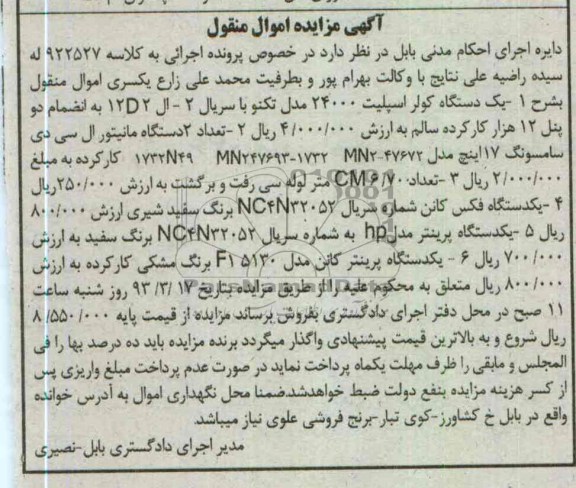 آگهی مزایده اموال منقول
دایره اجرای احکام مدنی بابل در نظر دارد در خصوص پرونده اجرائی به کلاسه ۹۲۲۵۲۷ له
سیده راضیه علی نتایج با وکالت بهرام پور و بطرفیت محمد علی زارع یکسری اموال منقول
بشرح ۱ -یک دستگاه کولر اسپلیت ۲۴۰۰۰ مدل تکنو با سریال ۲ - ال ۲ ۱۲D به انضمام دو
پنل ۱۲ هزار کارکرده سالم به ارزش ۴/۰۰۰/۰۰۰ ریال ۲ -تعداد ۲دستگاه مانیتور ال سی دی
سامسونگ ۱۷اینچ مدل MN۲-۴۷۶۷۲ MN۲۴۷۶۹۳-۱۷۳۲ ۱۷۳۲N۴۹ کارکرده به مبلغ
۲/۰۰۰/۰۰۰ ریال ۳ -تعداد CM۶/۷۰ متر لوله سی رفت و برگشت به ارزش ۲۵۰/۰۰۰ریال
۴ -یکدستگاه فکس کانن شماره سریال NC۴N۳۲۰۵۲ برنگ سفید شیری ارزش ۸۰۰/۰۰۰
ریال ۵ -یکدستگاه پرینتر مدل hp به شماره سریال NC۴N۳۲۰۵۲ برنگ سفید به ارزش
۷۰۰/۰۰۰ ریال ۶ - یکدستگاه پرینتر کانن مدل F۱۵۱۳۰ برنگ مشکی کارکرده به ارزش
۸۰۰/۰۰۰ ریال متعلق به محکوم علیه را از طریق مزایده بتاریخ ۹۳/۳/۱۷ روز شنبه ساعت
۱۱ صبح در محل دفتر اجرای دادگستری بفروش برساند مزایده از قیمت پایه ۸/۵۵۰/۰۰۰
ریال شروع و به بالاترین قیمت پیشنهادی واگذار میگردد برنده مزایده باید ده درصد بها را فی
المجلس و مابقی را ظرف مهلت یکماه پرداخت نماید در صورت عدم پرداخت مبلغ واریزی پس
از کسر هزینه مزایده بنفع دولت ضبط خواهدشد.ضمنا محل نگهداری اموال به آدرس خوانده
واقع در بابل خ کشاورز-کوی تبار-برنج فروشی علوی نیاز میباشد.
مدیر اجرای دادگستری بابل-نصیری